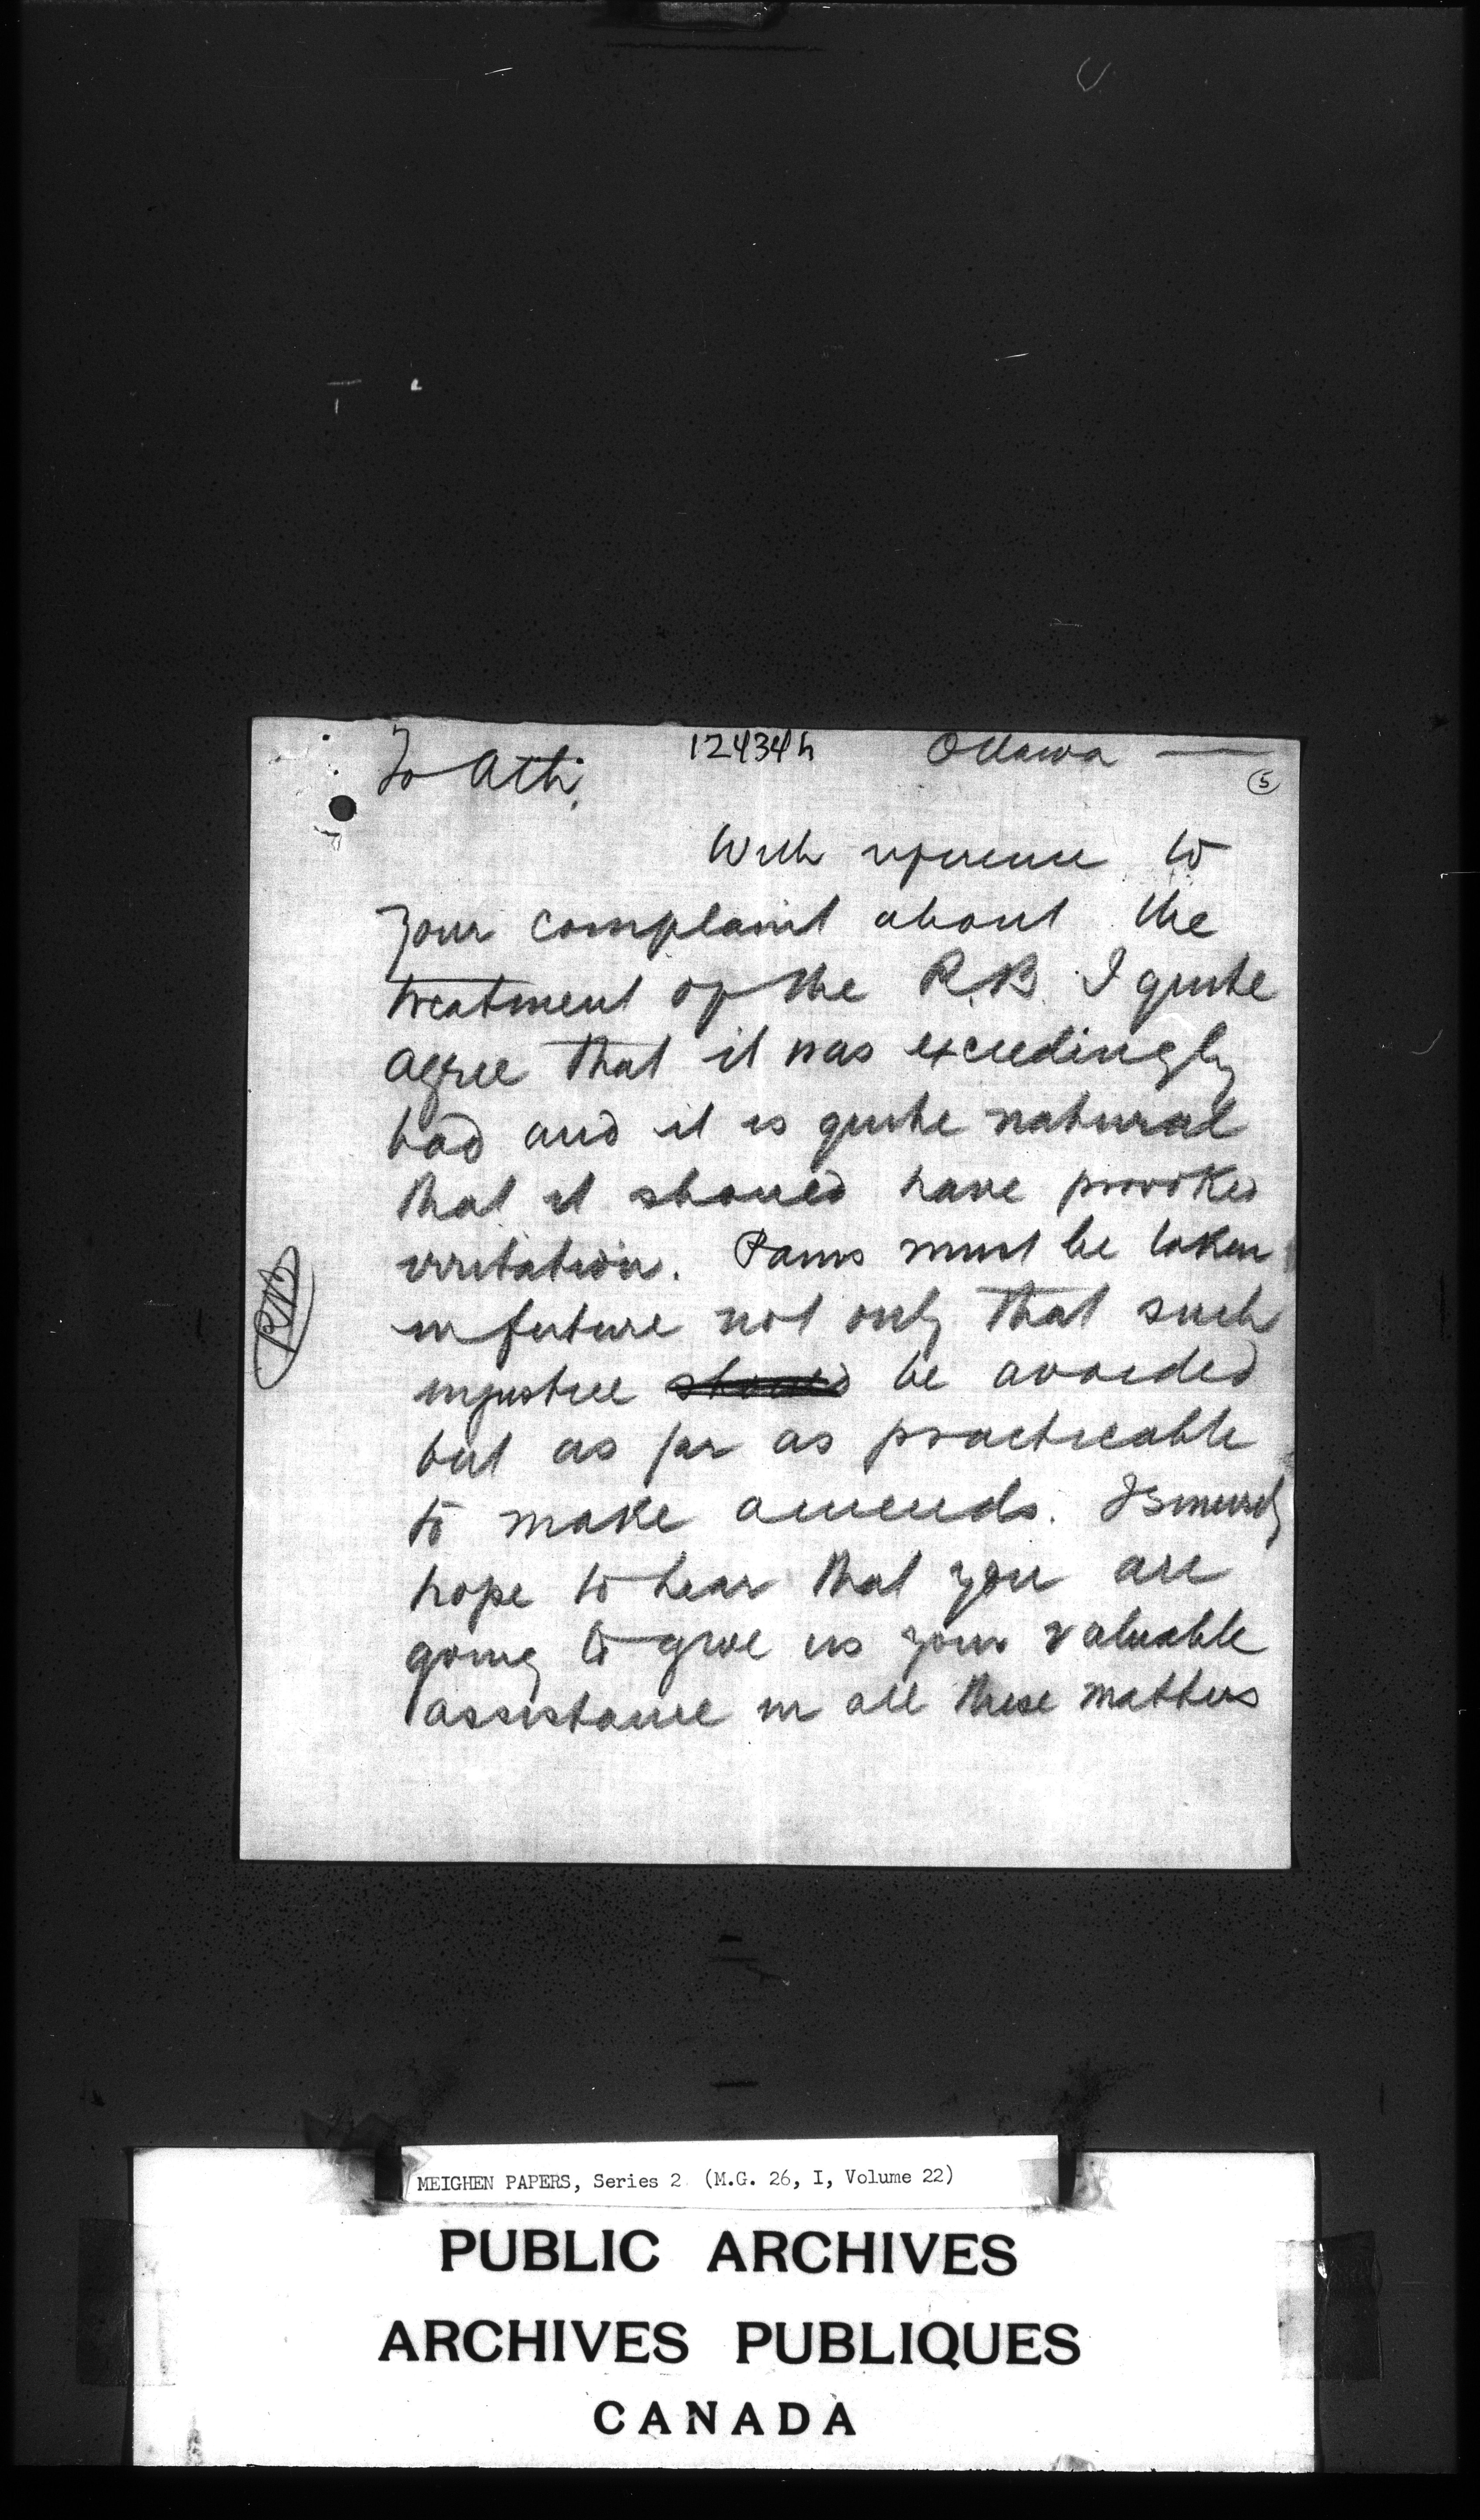 To Ath. 12434h Ottawa —
5
With reference to
your complaint about the
treatment of the R.B. I quite
agree that it was exceedingly
bad and it is quite natural
that it should have provoked
irritation. Pains must be taken
in future not only that such
injustice should be avoided
but as far as practicable
to make amends. I sincerely
hope to hear that you are
going to give us your valuable
assistance in all these matters
MEIGHEN PAPERS, Series 2 (M.G. 26, I, Volume 22)
PUBLIC ARCHIVES
ARCHIVES PUBLIQUES
CANADA